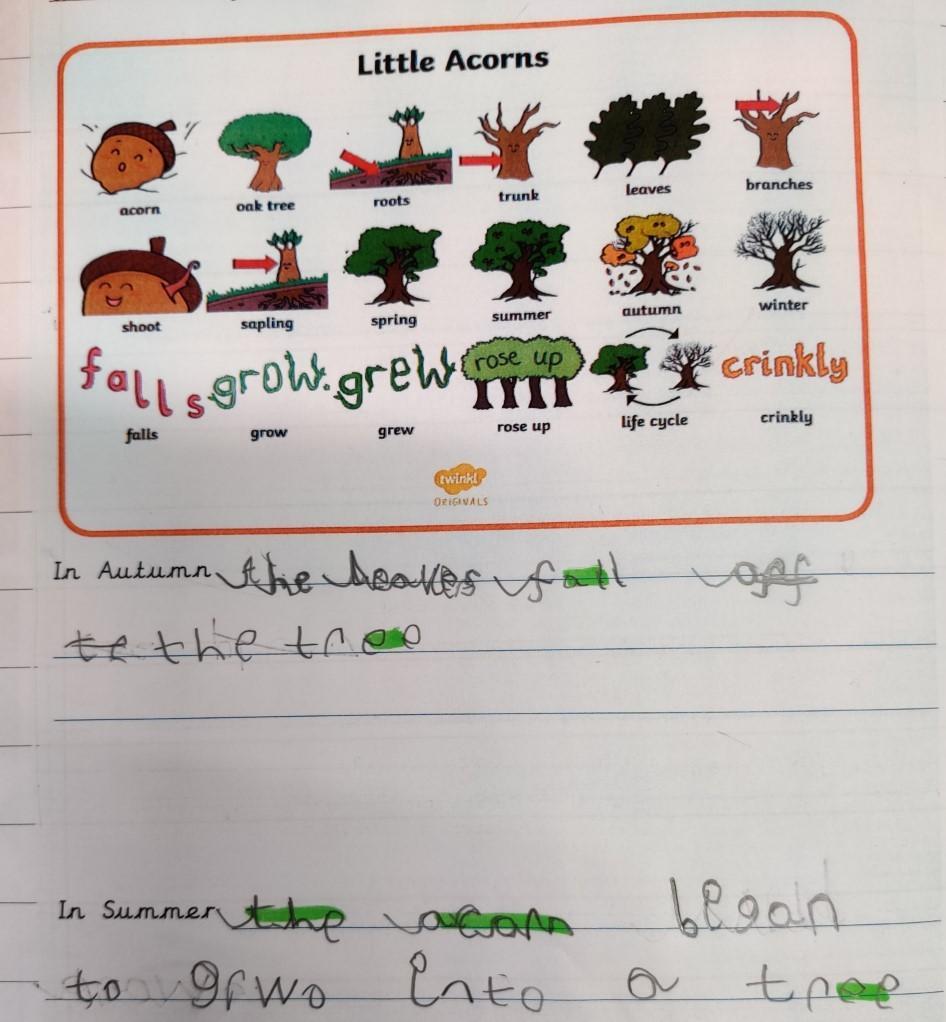 Little Acorns
acorn oak tree roots trunk leaves branches
shoot sapling spring summer autumn winter
falls grow. grew rose up crinkly
falls grow grew rose up life cycle crinkly
twinkl
ORIGINALS
In Autumn the leaves fall off
te the tree
In Summer the acorn began
to grwo into a tree